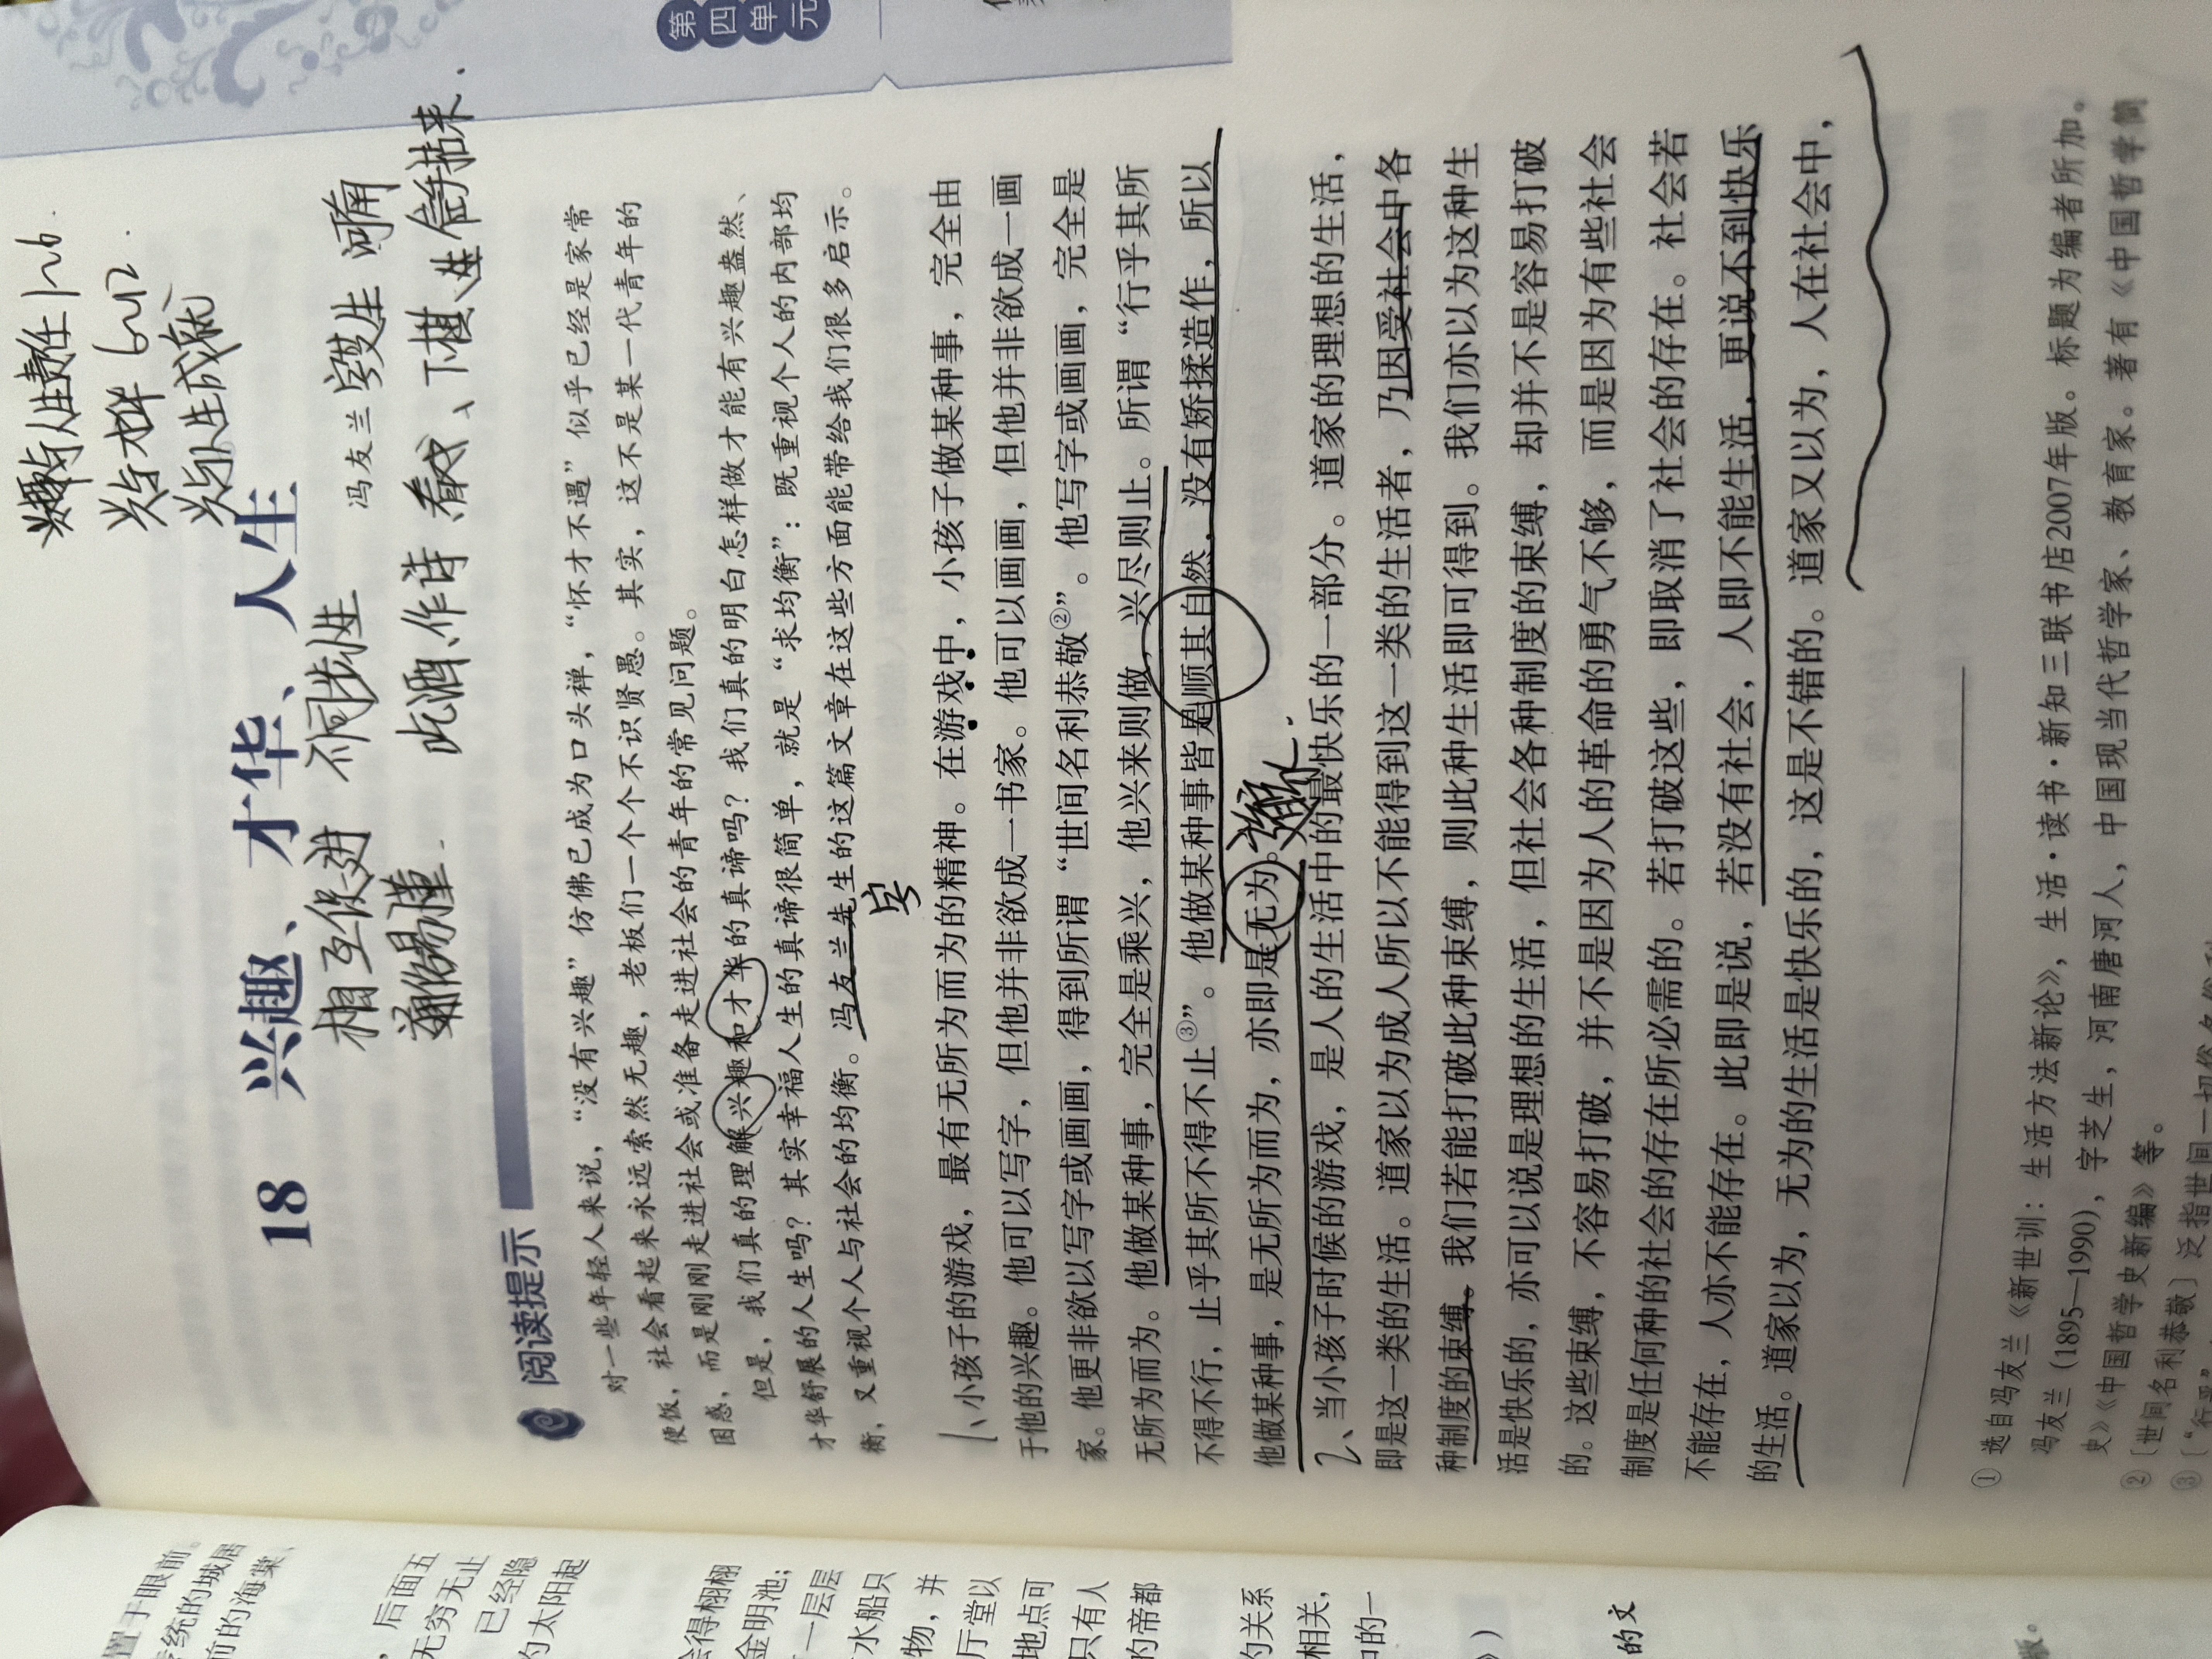 第四单元
兴趣与人生责任1~6.
兴与才华 6~12.
兴与人生成就
18 兴趣、才华、人生
相互促进 不同步性
冯友兰 字芝生 河南
此酒、作诗 看戏、下棋、 信手拈来.
通俗易懂.
阅读提示
对一些年轻人来说，“没有兴趣”仿佛已成为口头禅，“怀才不遇”似乎已经是家常
便饭，社会看起来永远索然无趣，老板们一个个不识贤愚。其实，这不是某一代青年的
困惑，而是刚刚走进社会或准备走进社会的青年的常见问题。
但是，我们真的理解兴趣和才华的真谛吗？我们真的明白怎样做才能有兴趣盎然、
才华舒展的人生吗？其实幸福人生的真谛很简单，就是“求均衡”：既重视个人的内部均
衡，又重视个人与社会的均衡。冯友兰先生的这篇文章在这些方面能带给我们很多启示。
字
1、小孩子的游戏，最有无所为而为的精神。在游戏中，小孩子做某种事，完全由
于他的兴趣。他可以写字，但他并非欲成一书家。他可以画画，但他并非欲成一画
家。他更非欲以写字或画画，得到所谓“世间名利恭敬②”。他写字或画画，完全是
无所为而为。他做某种事，完全是乘兴，他兴来则做，兴尽则止。所谓“行乎其所
不得不行，止乎其所不得不止③”。他做某种事皆是顺其自然，没有矫揉造作，所以
他做某种事，是无所为而为，亦即是无为。
2、当小孩子时候的游戏，是人的生活中的最快乐的一部分。道家的理想的生活，
即是这一类的生活。道家以为成人所以不能得到这一类的生活者，乃因受社会中各
种制度的束缚。我们若能打破此种束缚，则此种生活即可得到。我们亦以为这种生
活是快乐的，亦可以说是理想的生活，但社会各种制度的束缚，却并不是容易打破
的。这些束缚，不容易打破，并不是因为人的革命的勇气不够，而是因为有些社会
制度是任何种的社会的存在所必需的。若打破这些，即取消了社会的存在。社会若
不能存在，人亦不能存在。此即是说，若没有社会，人即不能生活，更说不到快乐
的生活。道家以为，无为的生活是快乐的，这是不错的。道家又以为，人在社会中，
① 选自冯友兰《新世训：生活方法新论》，生活·读书·新知三联书店2007年版。标题为编者所加。
冯友兰（1895—1990），字芝生，河南唐河人，中国现当代哲学家、教育家。著有《中国哲学简
史》《中国哲学史新编》等。
②〔世间名利恭敬〕泛指世间一切
③
置于眼前。
传统的城居
前的海棠，
，后面五
无穷无止
已经隐
的太阳起
会得栩栩
金明池；
一层层
水船只
物，并
厅堂以
地点可
只有人
的帝都
的关系
相关，
中的一
》）
的文
版。